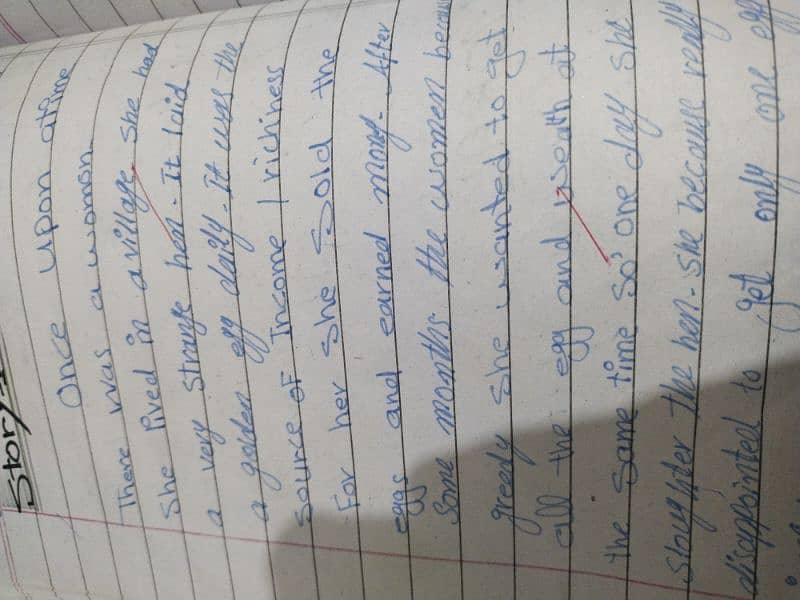 Story-
Once upon atime
There was a woman.
She lived in a village. She had
a very strange hen. It laid
a golden egg daily. it was the
source of Income / richness
For her she Sold the
eggs and earned mony. After
some months the women becam
greedy She wanted to get
all the egg and weath at
the same time so one day she
sloughter the hen. she because really
disappointed to get only one egg